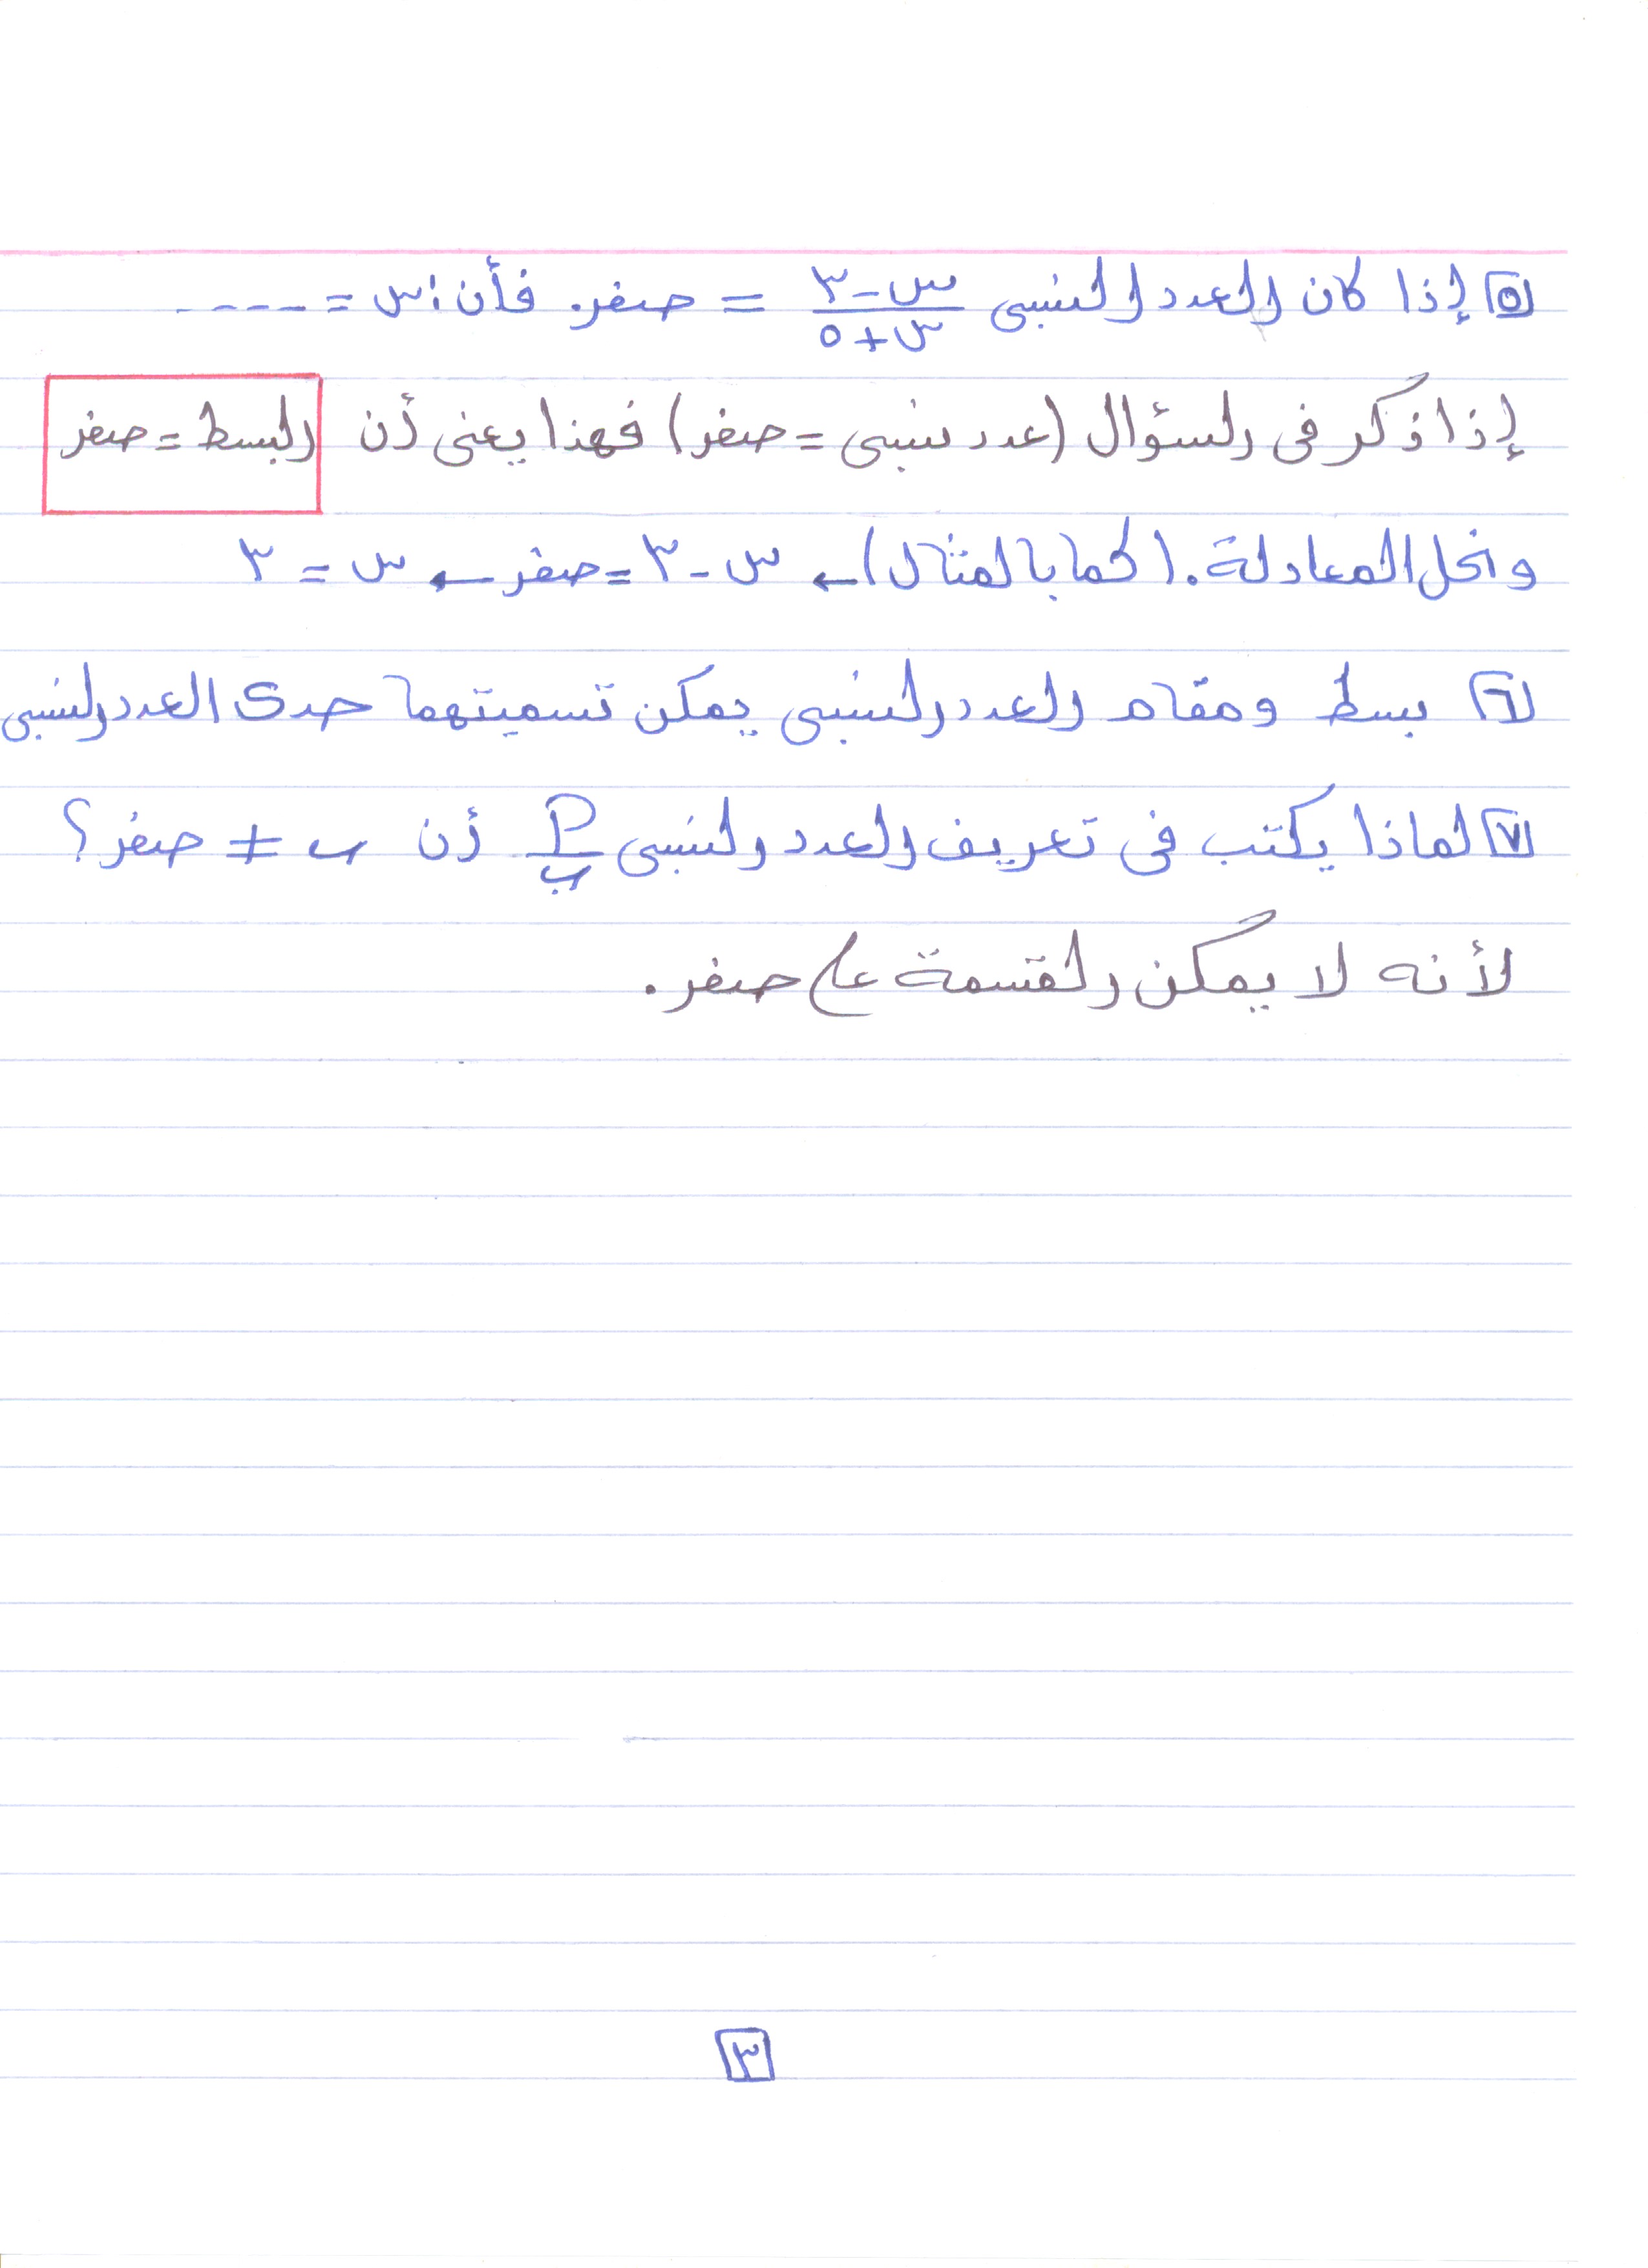 ٥ إذا كان العدد النسبى (س - ٣)/(س + ٥) = صفر. فأن: س = ----
إذا ذكر فى السؤال (عدد نسبى = صفر) فهذا يعنى أن البسط = صفر
ونحل المعادلة. (كما بالمثال) ← س - ٣ = صفر ← س = ٣
٦ بسط ومقام العدد النسبى يمكن تسميتهما حدى العدد النسبى
٧ لماذا يكتب فى تعريف العدد النسبى أ/ب أن ب ≠ صفر؟
لأنه لا يمكن القسمة على صفر.
٣